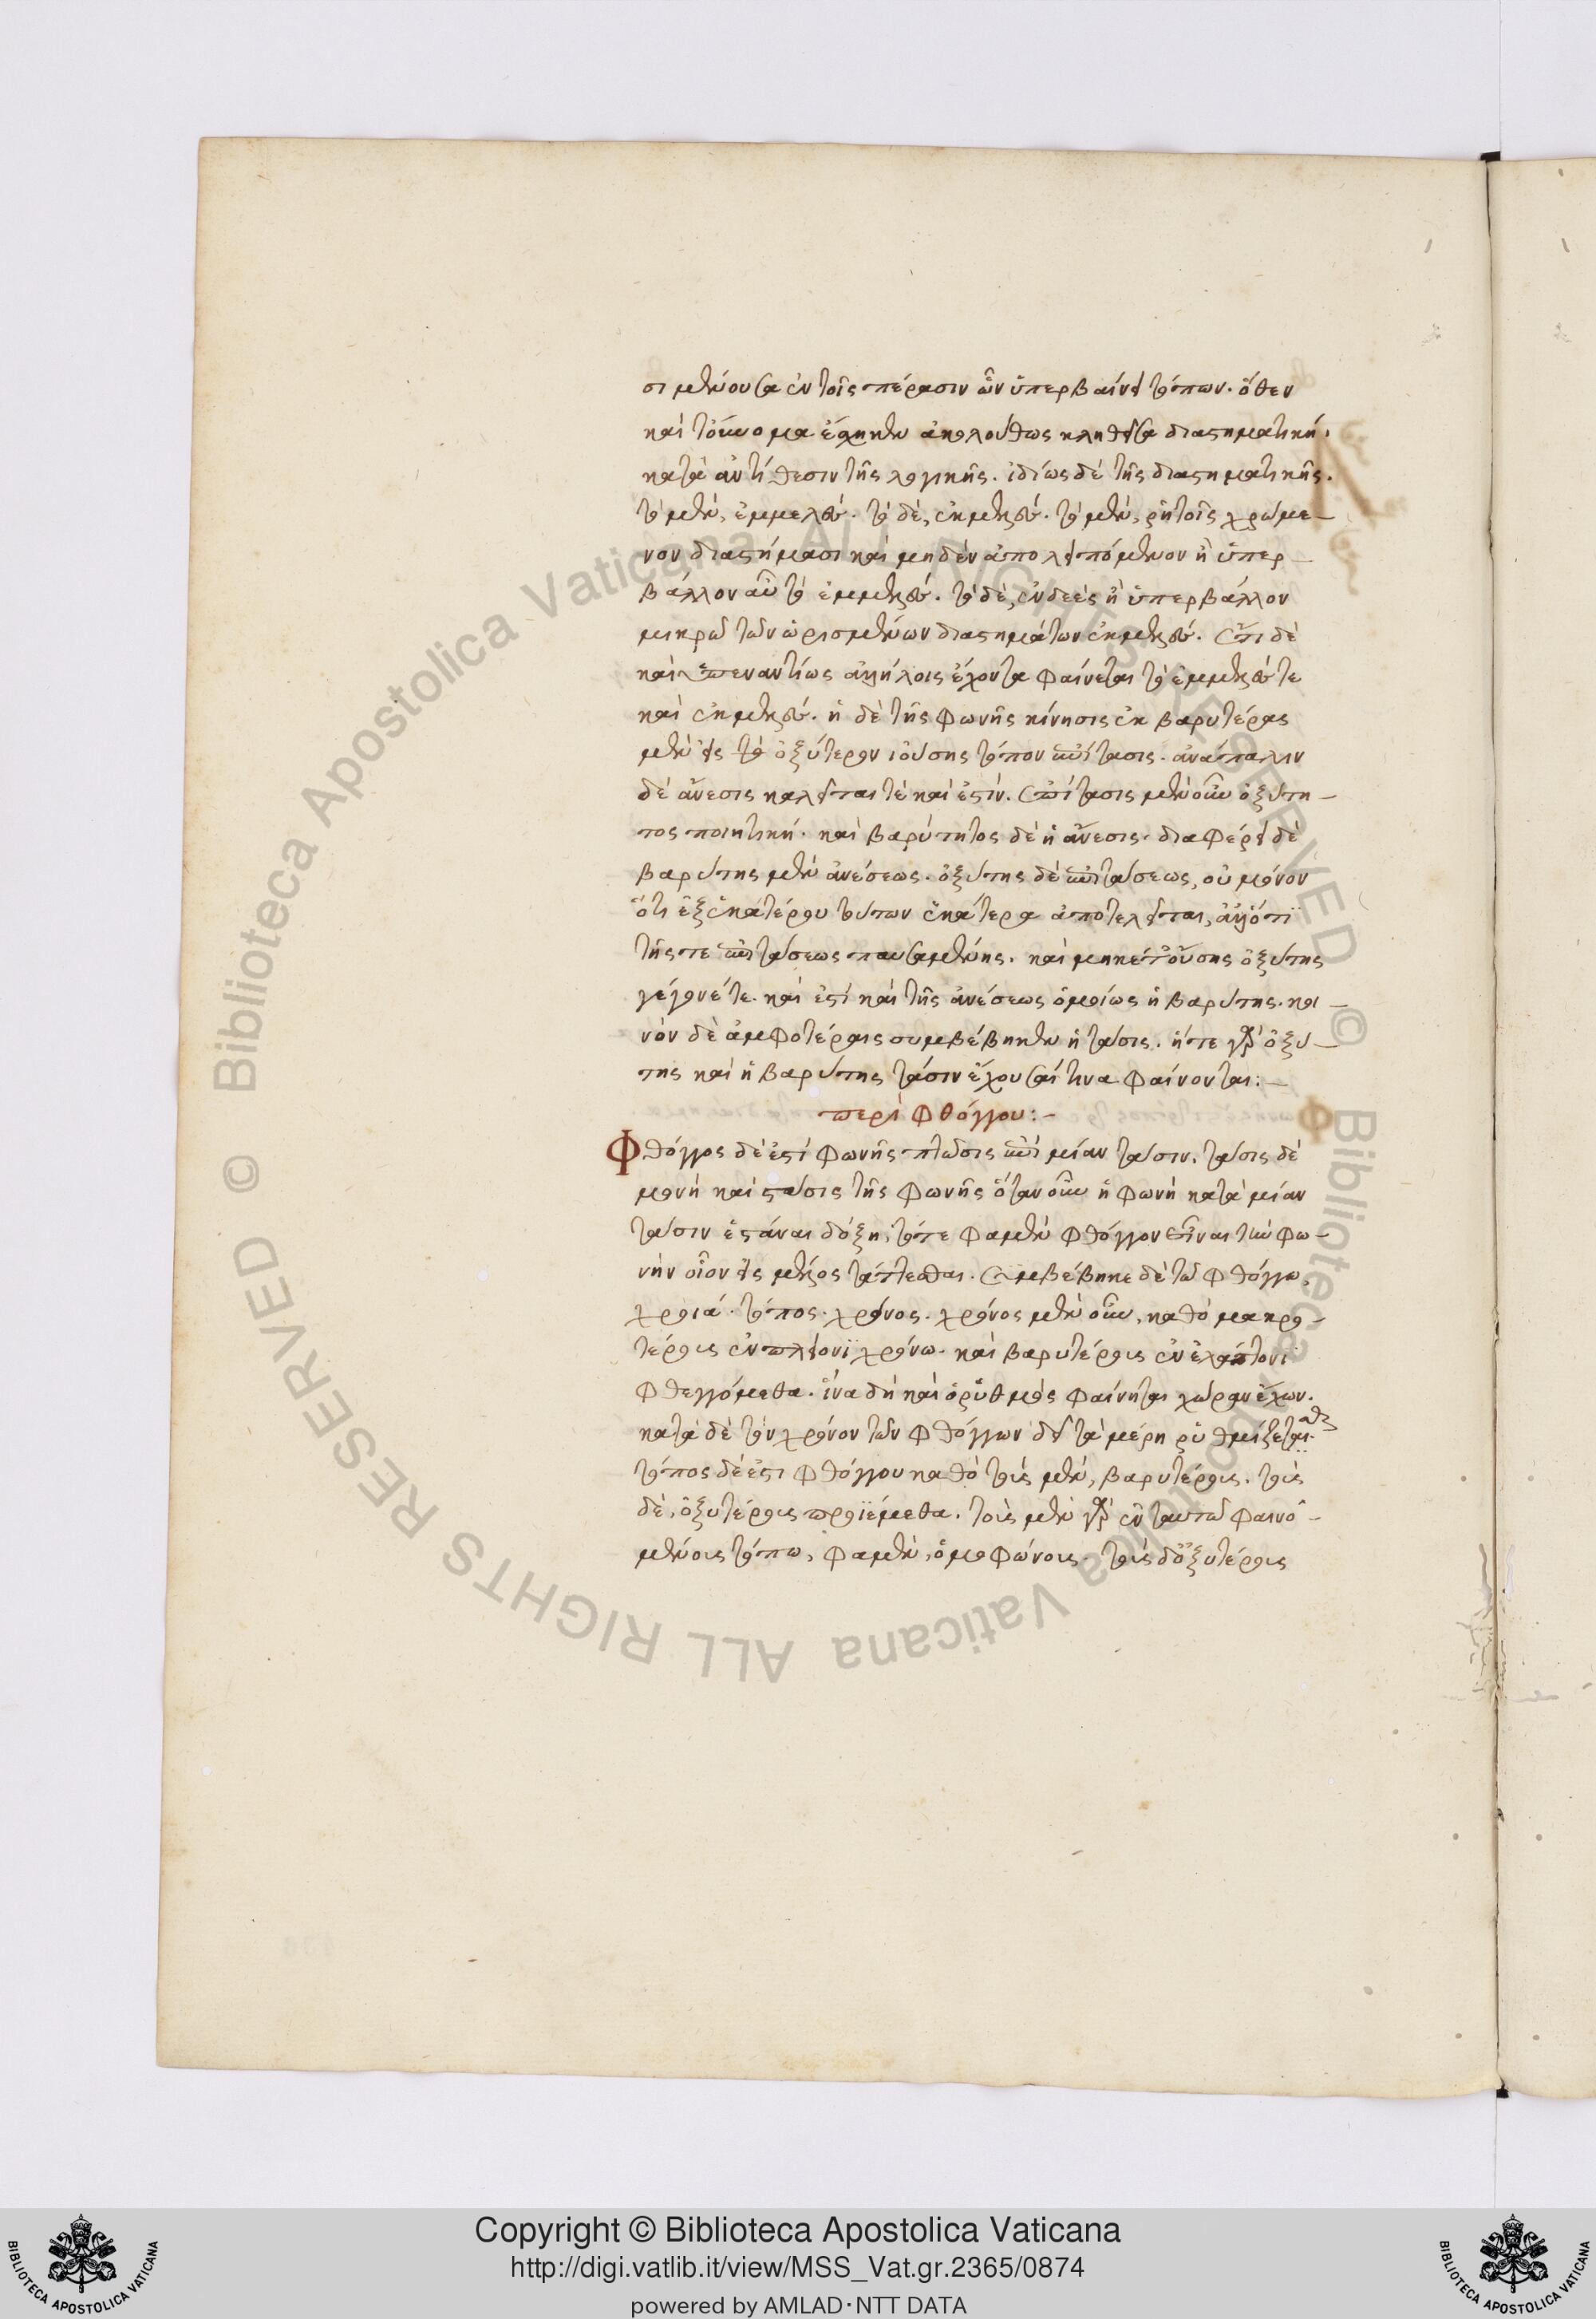 σι μένουσα ἐν τοῖς πέρασιν ὧν ὑπερβαίνει τόπων. ὅθεν
καὶ τὄυνομα ἔσχηκεν ἀκολούθως κληθεῖσα διαστηματική.
κατὰ ἀντίθεσιν τῆς λογικῆς. ἰδίως δὲ τῆς διαστηματικῆς.
τὸ μὲν, ἐμμελές. τὸ δὲ, ἐκμελές. τὸ μὲν, ῥητοῖς χρώμε-
νον διαστήμασι καὶ μηδὲν ἀπολειπόμενον ἢ ὑπερ-
βάλλον αὖ τὸ ἐμμελές. τὸ δὲ, ἐνδεὲς ἢ ὑπερβάλλον
μικρῶ τῶν ὡρισμένων διαστημάτων ἐκμελές. ἔτι δὲ
καὶ ὑπεναντίως ἀλλήλοις ἔχοντα φαίνεται τὸ ἐμμελές τε
καὶ ἐκμελές. ἡ δὲ τῆς φωνῆς κίνησις ἐκ βαρυτέρας
μὲν εἰς τὸ ὀξύτερον ἰούσης τόπον ἐπίτασις. ἀνάπαλιν
δὲ ἄνεσις καλεῖται τὲ καὶ ἐστίν. ἐπίτασις μὲν οὖν ὀξύτη-
τος ποιητική. καὶ βαρύτητος δὲ ἡ ἄνεσις. διαφέρει δὲ
βαρύτης μὲν ἀνέσεως. ὀξύτης δὲ ἐπιτάσεως, οὐ μόνον
ὅτι ἐξ ἑκατέρου τούτων ἑκάτερα ἀποτελεῖται, ἀλλ' ὅτι
τῆς τε ἐπιτάσεως παυσαμένης. καὶ μηκέτ' οὔσης ὀξύτης
γέγονέ τε. καὶ ἐστί καὶ τῆς ἀνέσεως ὁμοίως ἡ βαρύτης. κοι-
νὸν δὲ ἀμφοτέραις συμβέβηκεν ἡ τάσις. ἥ τε γὰρ ὀξύ-
της καὶ ἡ βαρύτης τάσιν ἔχουσαί τινα φαίνονται:-
περὶ φθόγγου:-
Φθόγγος δὲ ἐστί φωνῆς πτῶσις ἐπὶ μίαν τάσιν. τάσις δὲ
μονὴ καὶ στάσις τῆς φωνῆς ὅταν οὖν ἡ φωνὴ κατὰ μίαν
τάσιν ἑστάναι δόξη, τότε φαμὲν φθόγγον εἶναι τὴν φω-
νὴν οἷον εἰς μέλος τάττεσθαι. συμβέβηκε δὲ τῶ φθόγγω,
χροιά. τόπος. χρόνος. χρόνος μὲν οὖν, καθὸ μακρο-
τέροις ἐν πλείονι χρόνω. καὶ βαρυτέροις ἐν ἐλάττονι
φθεγγόμεθα. ἵνα δὴ καὶ ὁ ῥυθμὸς φαίνηται χώραν ἔχων.
κατὰ δὲ τὸν χρόνον τῶν φθόγγων δεῖ τὰ μέρη ῥυθμίζεται.
τόπος δὲ ἐστι φθόγγου καθὸ τοὺς μὲν, βαρυτέροις. τοὺς
δὲ, ὀξυτέροις προϊέμεθα. τοὺς μὲν γὰρ ἐν ταυτῶ φαινο-
μένους τόπω, φαμὲν, ὁμοφώνους. τοὺς δ' ὀξυτέροις
Copyright © Biblioteca Apostolica Vaticana
http://digi.vatlib.it/view/MSS_Vat.gr.2365/0874
powered by AMLAD·NTT DATA
BIBLIOTECA APOSTOLICA VATICANA
BIBLIOTECA APOSTOLICA VATICANA
© Biblioteca Apostolica Vaticana ALL RIGHTS RESERVED
© Biblioteca Apostolica Vaticana ALL RIGHTS RESERVED